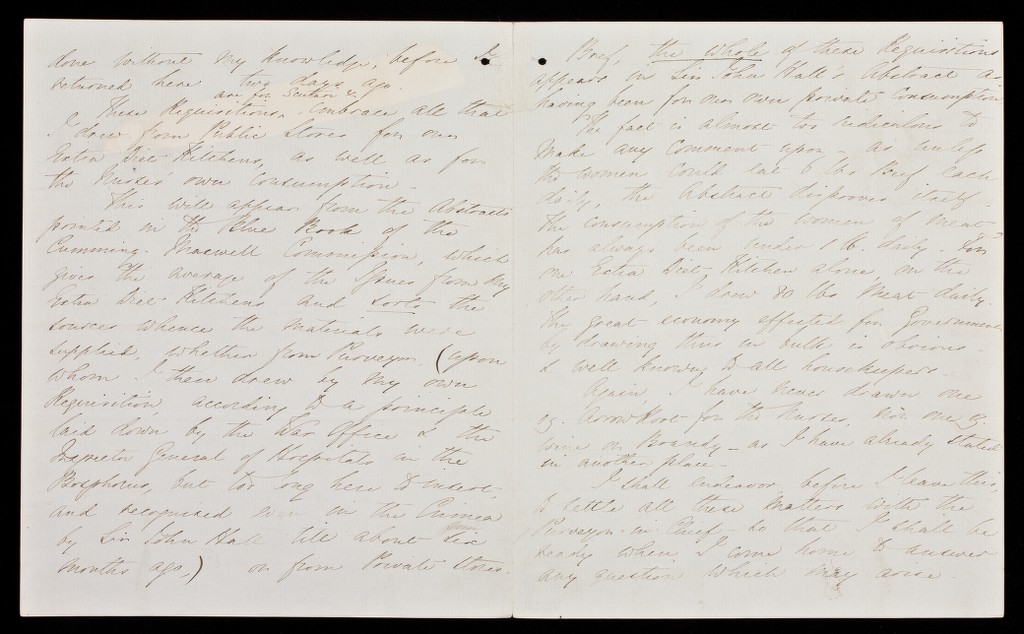 done without my knowledge, before I
returned here two days ago.
are for Scutari &
These Requisitions, embrace all that
I drew from Public Stores for our
Extra Diet Kitchens, as well as for
the Nurses' own consumption -
This will appear from the Abstracts
printed in the Blue Book of the
Cumming-Maxwell Commission, which
gives the average of the Issues from my
Extra Diet Kitchens and sorts the
sources whence the materials were
supplied, whether from Purveyor, (upon
whom I then drew by my own
Requisition, according to a principle
laid down by the War Office & the
Inspector General of Hospitals on the
Bosphorus, but too long here to insert,
and recognized even in the Crimea
by Sir John Hall till about six
months ago,) or from Private Stores.
Beef, the whole of these Requisitions
appears in Sir John Hall's Abstract as
having been for our own private consumption
The fact is almost too ridiculous to
make any comment upon - as unless
the women could eat 6 lbs Beef each
daily, the Abstract disproves itself.
The consumption of the women of meat
has always been under 1 lb. daily. For
one Extra Diet Kitchen alone, on the
other hand, I drew 80 lbs meat daily.
The great economy effected for Government
by drawing thus in bulk is obvious
& well known to all housekeepers.
Again, I have never drawn one
oz. Arrow Root for the Nurses, nor one oz.
wine or Brandy - as I have already stated
in another place -
I shall endeavor before I leave this,
to settle all these matters with the
Purveyor-in-Chief so that I shall be
ready when I come home to answer
any question which may arise.